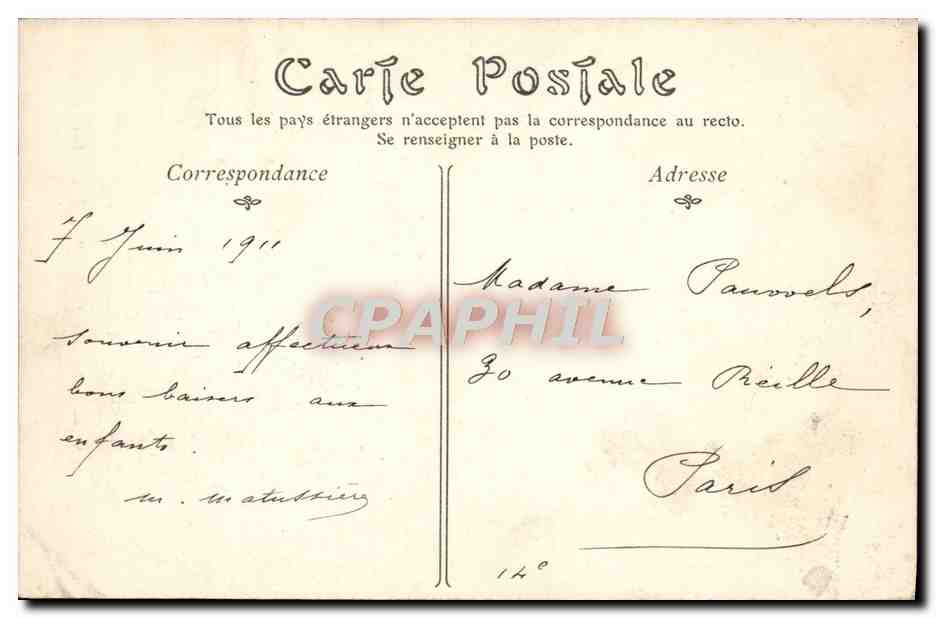 Carte Postale
Tous les pays étrangers n'acceptent pas la correspondance au recto.
Se renseigner à la poste.
Correspondance
7 Juin 1911
souvenir affectueux
bons baisers aux
enfants.
M. Matussière
Adresse
Madame Pauwels,
30 avenue Reille
Paris
14e
CPAPHIL